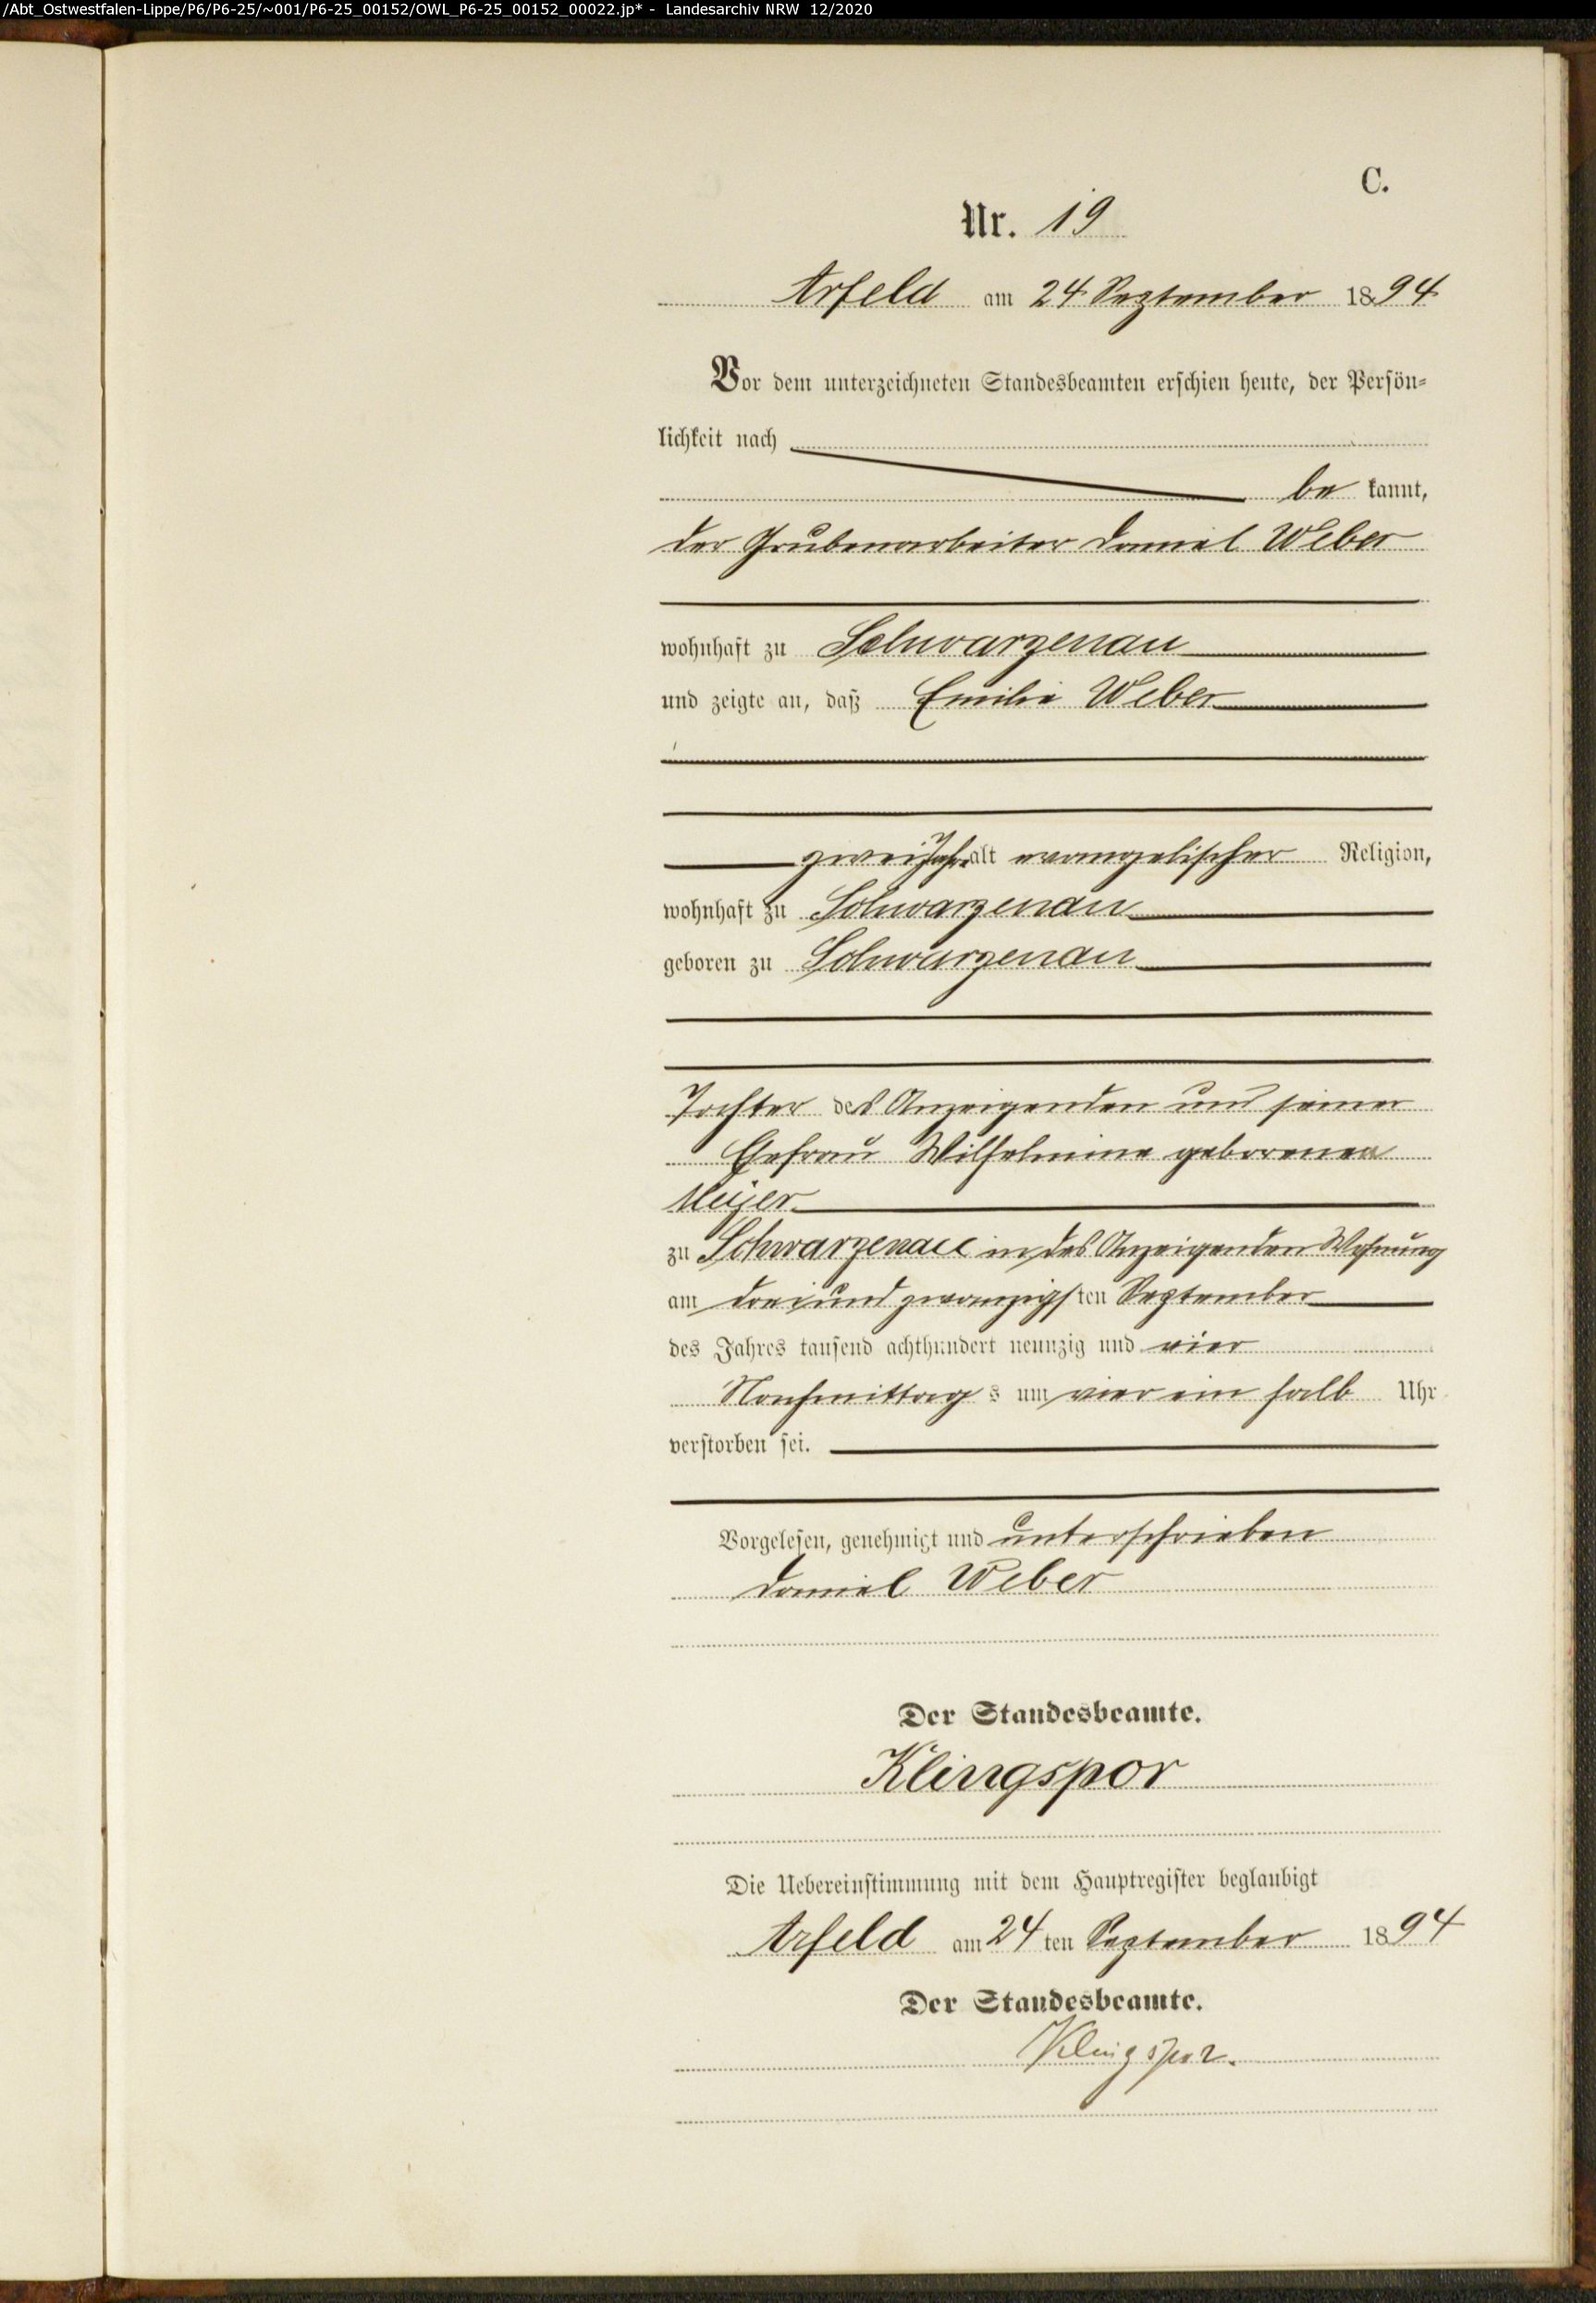 /Abt_Ostwestfalen-Lippe/P6/P6-25/~001/P6-25_00152/OWL_P6-25_00152_00022.jp* - Landesarchiv NRW 12/2020
C.
Nr. 19
Arfeld am 24 September 1894
Vor dem unterzeichneten Standesbeamten erschien heute, der Persön-
lichkeit nach
be kannt,
der Grubenarbeiter Daniel Weber
wohnhaft zu Schwarzenau
und zeigte an, daß Emilie Weber
zwei Jahre alt evangelischer Religion,
wohnhaft zu Schwarzenau
geboren zu Schwarzenau
Tochter des Anzeigenden und seiner
Ehefrau Wilhelmine geborenen
Meyer
zu Schwarzenau in des Anzeigenden Wohnung
am drei und zwanzigsten September
des Jahres tausend achthundert neunzig und vier
Nachmittags um vier ein halb Uhr
verstorben sei.
Vorgelesen, genehmigt und unterschrieben
Daniel Weber
Der Standesbeamte.
Klingspor
Die Uebereinstimmung mit dem Hauptregister beglaubigt
Arfeld am 24 ten September 1894
Der Standesbeamte.
Klingspor.